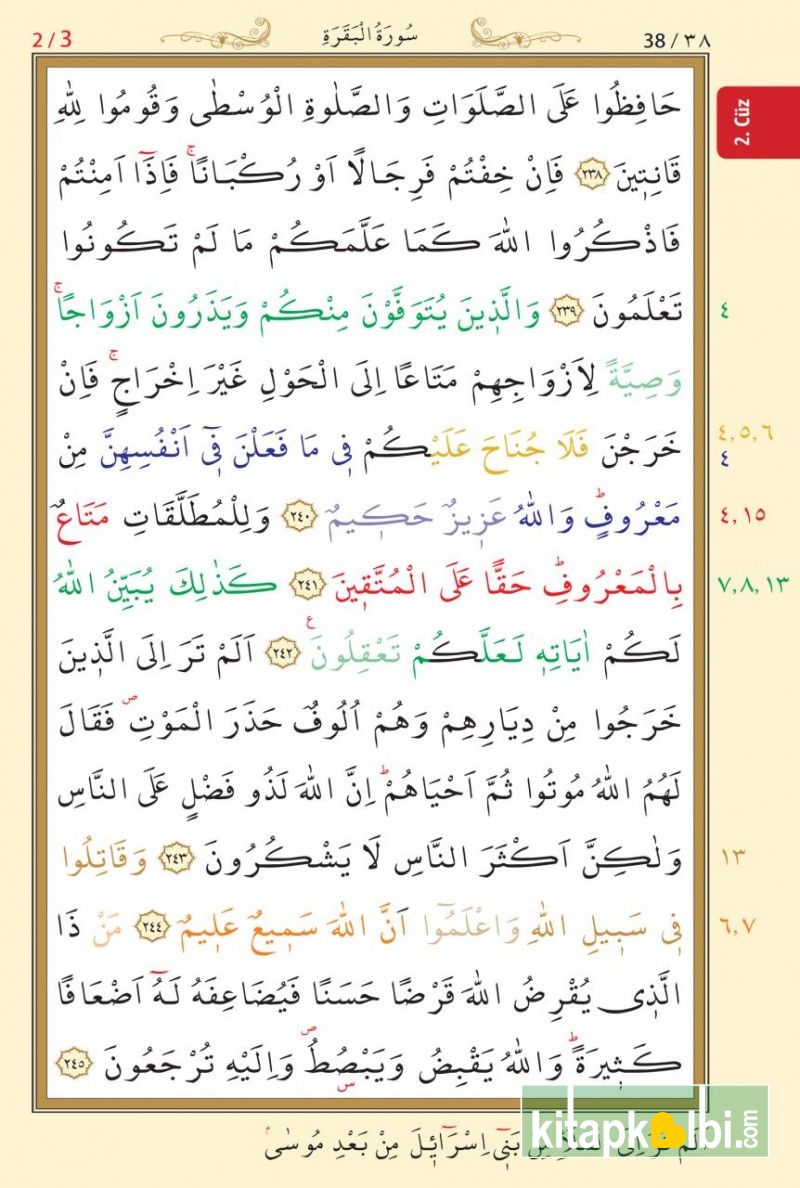 38 / ٣٨
سُورَةُ الْبَقَرَةِ
2 / 3
2. Cüz
حَافِظُوا عَلَى الصَّلَوَاتِ وَالصَّلٰوةِ الْوُسْطٰى وَقُومُوا لِلّٰهِ
قَانِت۪ينَ ﴿٢٣٨﴾ فَاِنْ خِفْتُمْ فَرِجَالًا اَوْ رُكْبَانًاۚ فَاِذَٓا اَمِنْتُمْ
فَاذْكُرُوا اللّٰهَ كَمَا عَلَّمَكُمْ مَا لَمْ تَكُونُوا
تَعْلَمُونَ ﴿٢٣٩﴾ وَالَّذ۪ينَ يُتَوَفَّوْنَ مِنْكُمْ وَيَذَرُونَ اَزْوَاجًاۚ
٤
وَصِيَّةً لِاَزْوَاجِهِمْ مَتَاعًا اِلَى الْحَوْلِ غَيْرَ اِخْرَاجٍۚ فَاِنْ
خَرَجْنَ فَلَا جُنَاحَ عَلَيْكُمْ ف۪ي مَا فَعَلْنَ ف۪ٓي اَنْفُسِهِنَّ مِنْ
٤,٥,٦
٤
مَعْرُوفٍۜ وَاللّٰهُ عَز۪يزٌ حَك۪يمٌ ﴿٢٤٠﴾ وَلِلْمُطَلَّقَاتِ مَتَاعٌ
٤,١٥
بِالْمَعْرُوفِۜ حَقًّا عَلَى الْمُتَّق۪ينَ ﴿٢٤١﴾ كَذٰلِكَ يُبَيِّنُ اللّٰهُ
٧,٨,١٣
لَكُمْ اٰيَاتِه۪ لَعَلَّكُمْ تَعْقِلُونَ ﴿٢٤٢﴾ ع اَلَمْ تَرَ اِلَى الَّذ۪ينَ
خَرَجُوا مِنْ دِيَارِهِمْ وَهُمْ اُلُوفٌ حَذَرَ الْمَوْتِۖ فَقَالَ
لَهُمُ اللّٰهُ مُوتُوا ثُمَّ اَحْيَاهُمْۜ اِنَّ اللّٰهَ لَذُو فَضْلٍ عَلَى النَّاسِ
وَلٰكِنَّ اَكْثَرَ النَّاسِ لَا يَشْكُرُونَ ﴿٢٤٣﴾ وَقَاتِلُوا
١٣
ف۪ي سَب۪يلِ اللّٰهِ وَاعْلَمُٓوا اَنَّ اللّٰهَ سَم۪يعٌ عَل۪يمٌ ﴿٢٤٤﴾ مَنْ ذَا
٦,٧
الَّذ۪ي يُقْرِضُ اللّٰهَ قَرْضًا حَسَنًا فَيُضَاعِفَهُ لَهُٓ اَضْعَافًا
كَث۪يرَةًۜ وَاللّٰهُ يَقْبِضُ وَيَبْصُۣطُۖ وَاِلَيْهِ تُرْجَعُونَ ﴿٢٤٥﴾
بَن۪ٓي اِسْرَٓائ۪لَ مِنْ بَعْدِ مُوسٰىۢ
kitapkalbi.com